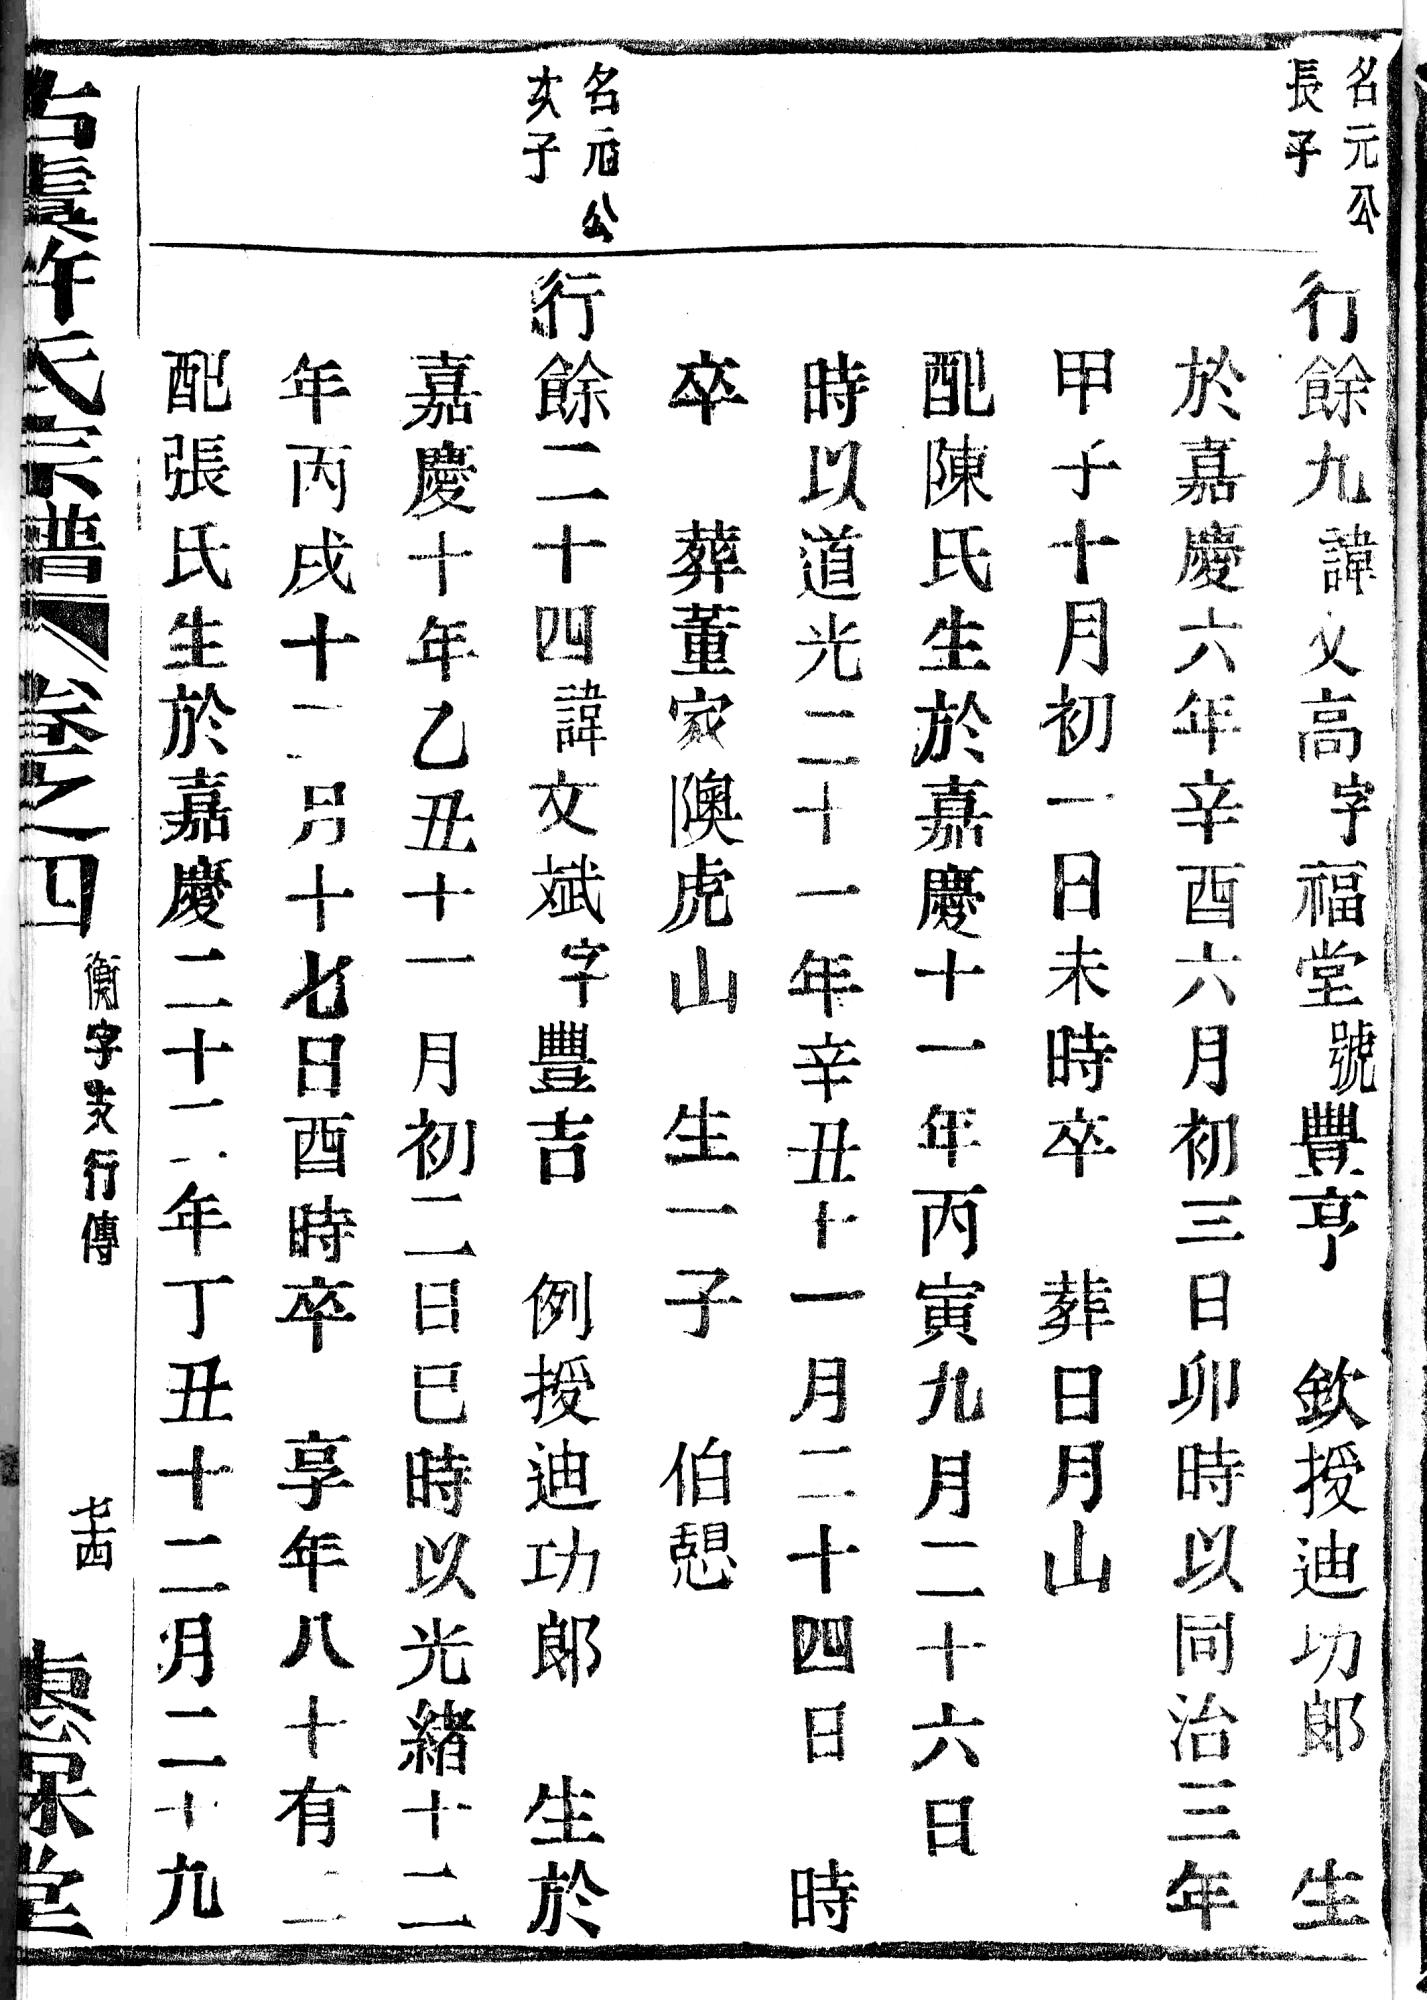 名元公
長子
行餘九諱文高字福堂號豐亨　欽授迪功郎　生
於嘉慶六年辛酉六月初三日卯時以同治三年
甲子十月初一日未時卒　葬日月山
配陳氏生於嘉慶十一年丙寅九月二十六日
時以道光二十一年辛丑十一月二十四日　時
卒　葬董家隩虎山　生一子　伯憇
名元公
次子
行餘二十四諱文斌字豐吉　例授迪功郎　生於
嘉慶十年乙丑十一月初二日巳時以光緒十二
年丙戌十二月十七日酉時卒　享年八十有二
配張氏生於嘉慶二十二年丁丑十二月二十九
古虞許氏宗譜　卷之四
衡字支行傳
堂